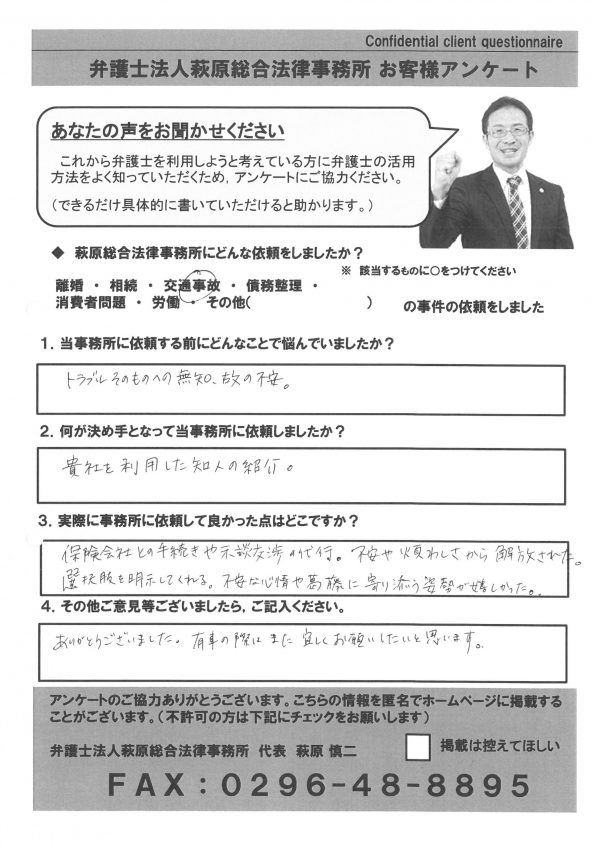 Confidential client questionnaire
弁護士法人萩原総合法律事務所 お客様アンケート
あなたの声をお聞かせください
これから弁護士を利用しようと考えている方に弁護士の活用
方法をよく知っていただくため,アンケートにご協力ください。
(できるだけ具体的に書いていただけると助かります。)
◆ 萩原総合法律事務所にどんな依頼をしましたか?
※ 該当するものに○をつけてください
離婚 ・ 相続 ・ 交通事故 ・ 債務整理 ・
消費者問題 ・ 労働 ・ その他( ) の事件の依頼をしました
1.当事務所に依頼する前にどんなことで悩んでいましたか?
トラブルそのものへの無知、故の不安。
2.何が決め手となって当事務所に依頼しましたか?
貴社を利用した知人の紹介。
3.実際に事務所に依頼して良かった点はどこですか?
保険会社との手続きや示談交渉の代行。不安や煩わしさから解放された。
選択肢を明示してくれる。不安な心情や葛藤に寄り添う姿勢が嬉しかった。
4.その他ご意見等ございましたら,ご記入ください。
ありがとうございました。有事の際はまた宜しくお願いしたいと思います。
アンケートのご協力ありがとうございます。こちらの情報を匿名でホームページに掲載する
ことがございます。(不許可の方は下記にチェックをお願いします)
弁護士法人萩原総合法律事務所 代表 萩原 慎二
掲載は控えてほしい
FAX:0296-48-8895